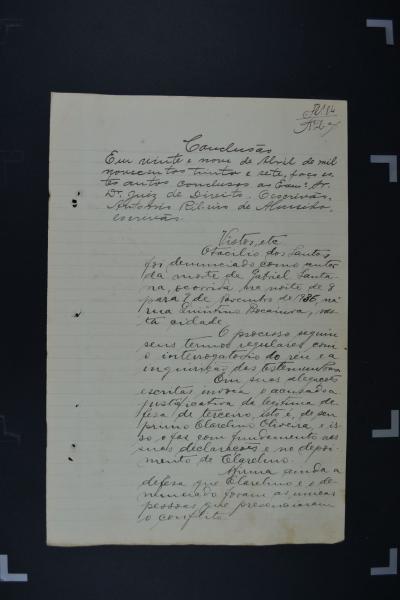 Fl. 14
Conclusão
Em vinte e nove de Abril de mil
novecentos trinta e sete, faço es-
tes autos conclusos ao Exmo. Sr.
Dr. Juiz de Direito. Escrivão,
Antonio Ribeiro de Almeida,
escrivão.
Vistos, etc
Otacilio dos Santos
foi denunciado como autor
da morte de Gabriel Santa-
na, ocorrida na noite de 8
para 9 de novembro de 1936, na
rua Quintino Bocaiuva, nes-
ta cidade.
O processo seguiu
seus termos regulares com
o interrogatorio do réu e a
inquirição das testemunhas.
Em suas alegações
escritas invoca o acusado a
justificativa da legitima de-
fesa de terceiro, isto é, de seu
primo Clarelino Oliveira, e is-
so o faz com fundamento nas
suas declarações e no depoi-
mento de Clarelino.
Afirma ainda a
defesa que Clarelino e o de-
nunciado foram as unicas
pessoas que presenciaram
o conflito